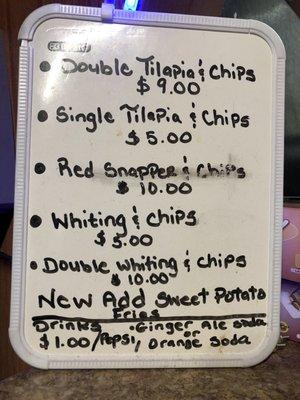 Double Tilapia & Chips
$9.00
Single Tilapia & Chips
$5.00
Red Snapper & Chips
$10.00
Whiting & Chips
$5.00
Double Whiting & Chips
$10.00
New Add Sweet Potato
Fries
Drinks . Ginger Ale soda
or
$1.00/Pepsi, Orange Soda